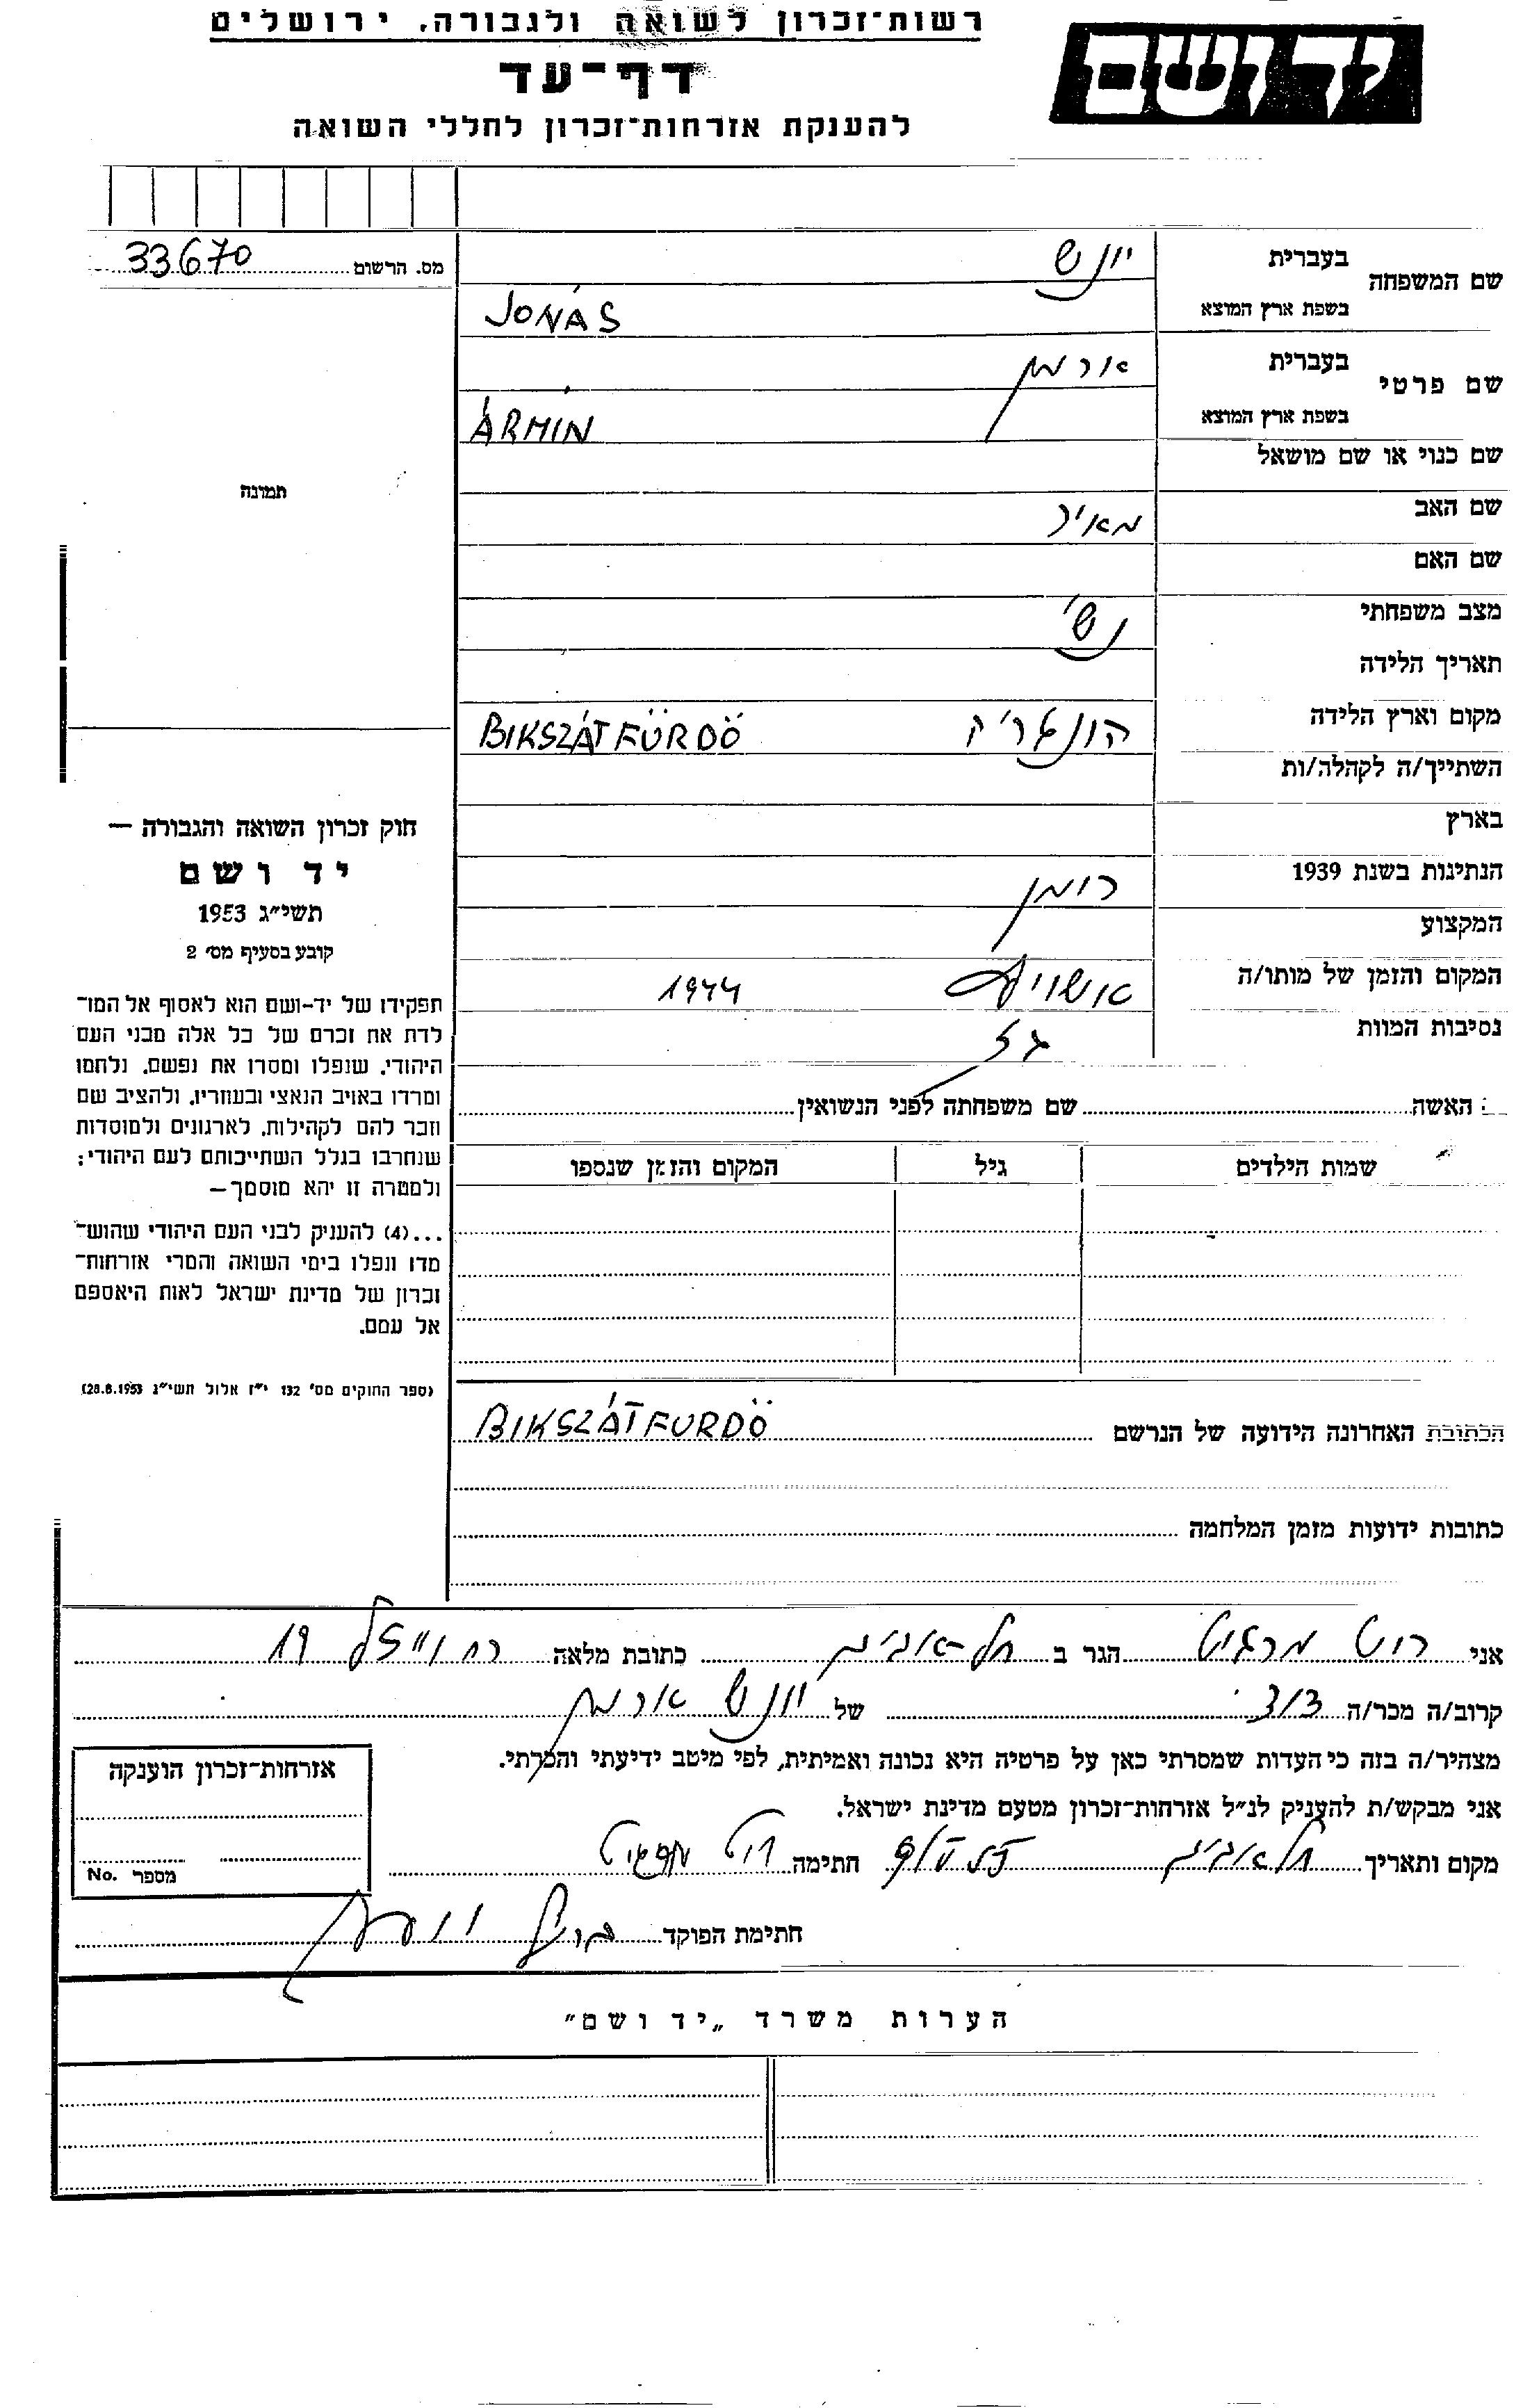 רשות־זכרון לשואה ולגבורה, ירושלים
יד ושם
דף־עד
להענקת אזרחות־זכרון לחללי השואה
מס. הרשום 33670
שם המשפחה
בעברית יונש
בשפת ארץ המוצא JONÁS
שם פרטי
בעברית ארמן
בשפת ארץ המוצא ÁRMIN
שם כנוי או שם מושאל
שם האב מאיר
שם האם
מצב משפחתי נשוי
תאריך הלידה
מקום וארץ הלידה הונגריה BIKSZÁTFÜRDÖ
השתייך/ה לקהלה/ות
בארץ
הנתינות בשנת 1939 רומן
המקצוע
המקום והזמן של מותו/ה אשויץ 1944
נסיבות המוות גז
תמונה
חוק זכרון השואה והגבורה —
יד ושם
תשי״ג 1953
קובע בסעיף מס׳ 2
תפקידו של יד-ושם הוא לאסוף אל המו־
לדת את זכרם של כל אלה מבני העם
היהודי, שנפלו ומסרו את נפשם, נלחמו
ומרדו באויב הנאצי ובעוזריו, ולהציב שם
וזכר להם לקהילות, לארגונים ולמוסדות
שנחרבו בגלל השתייכותם לעם היהודי;
ולמטרה זו יהא מוסמך—
...(4) להעניק לבני העם היהודי שהוש־
מדו ונפלו בימי השואה והמרי אזרחות־
זכרון של מדינת ישראל לאות היאספם
אל עמם.
(ספר החוקים מס׳ 132 י״ז אלול תשי״ג 28.8.1953)
האשה שם משפחתה לפני הנשואין
שמות הילדים גיל המקום והזמן שנספו
הכתובת האחרונה הידועה של הנרשם BIKSZÁTFURDÖ
כתובות ידועות מזמן המלחמה
אני רוט מרגיט הגר ב תל-אביב כתובת מלאה רח 19
קרוב/ה מכר/ה של יונש ארמן
מצהיר/ה בזה כי העדות שמסרתי כאן על פרטיה היא נכונה ואמיתית, לפי מיטב ידיעתי והכרתי.
אני מבקש/ת להעניק לנ״ל אזרחות־זכרון מטעם מדינת ישראל.
מקום ותאריך תל אביב חתימה רוט
חתימת הפוקד
אזרחות־זכרון הוענקה
מספר No.
הערות משרד „יד ושם״